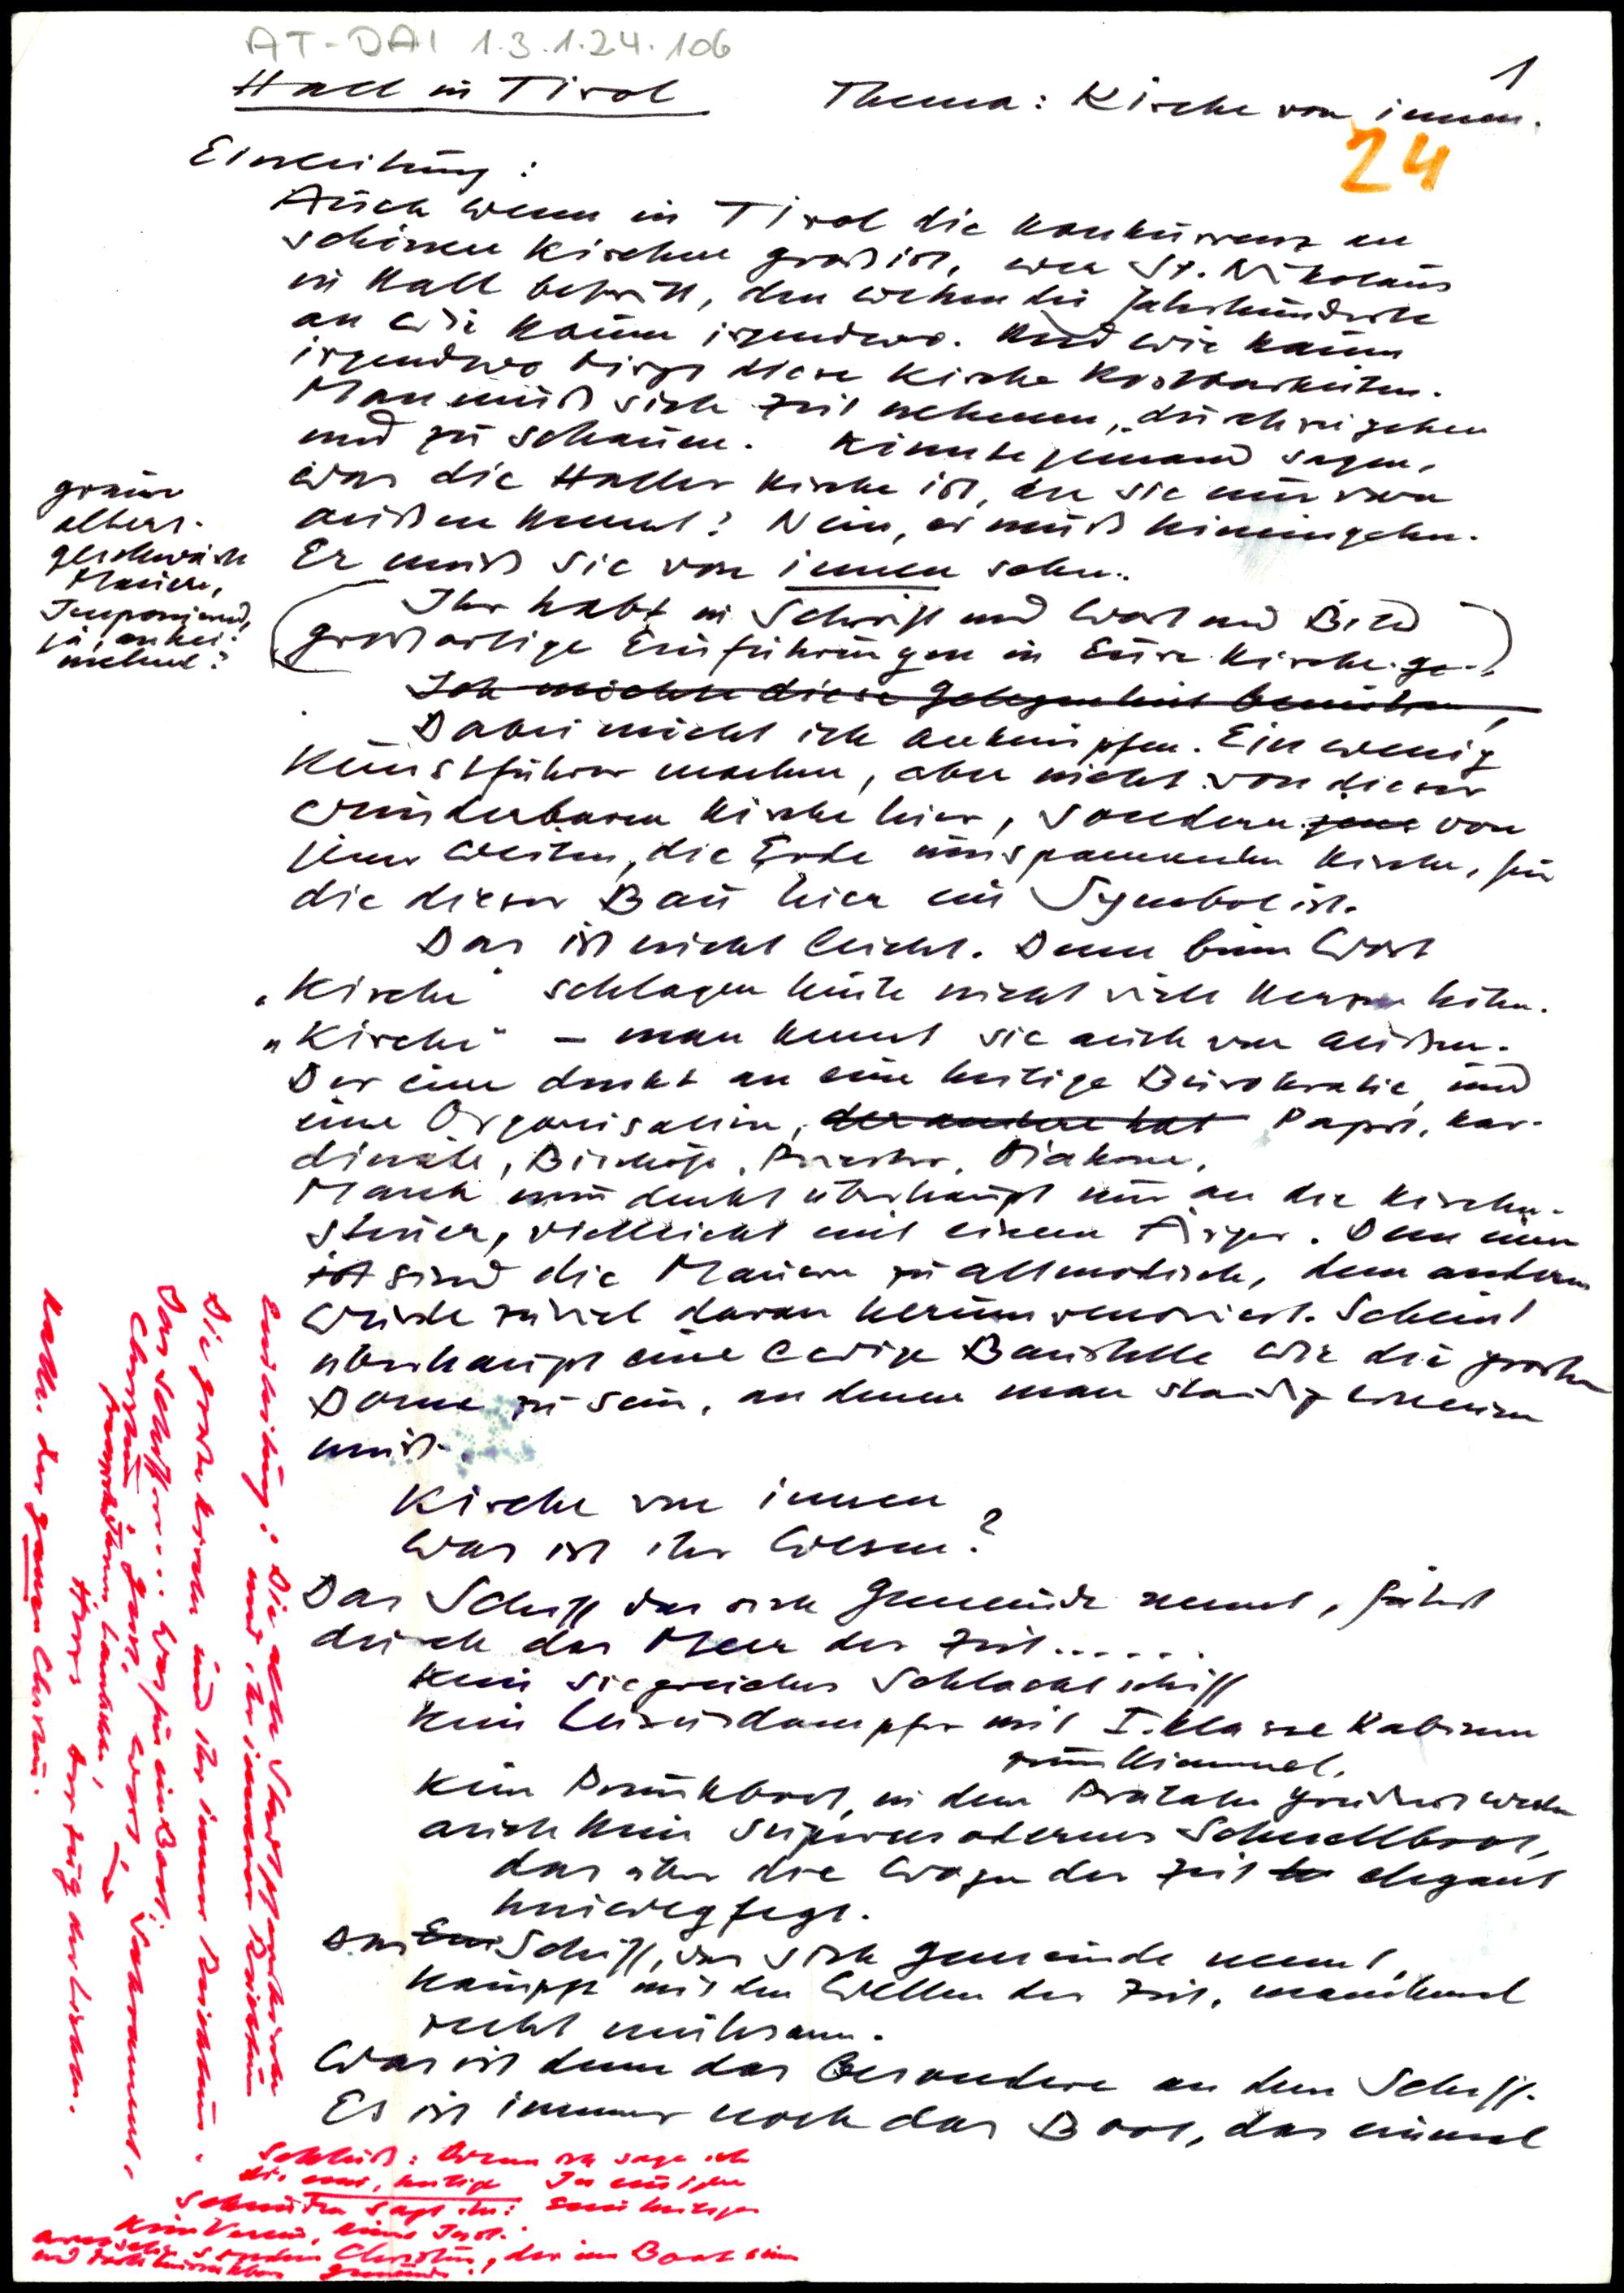 AT-DAI 1.3.1.24.106
1
Hall in Tirol
Thema: Kirche von innen.
24
Einleitung:
Auch wenn in Tirol die Konkurrenz an
schönen Kirchen groß ist, wer St. Nikolaus
in Hall betritt, den wehen die Jahrhunderte
an wie kaum irgendwo. Und wie kaum
irgendwo birgt diese Kirche Kostbarkeiten.
Man muß sich Zeit nehmen, durchzugehen
und zu schauen. Könnte jemand sagen,
was die Haller Kirche ist, der sie nur von
außen kennt? Nein, er muß hineingehn.
Er muß sie von innen sehn.
graue
alters-
geschwärzte
Mauern,
Imponierend,
ja, anhei-
melnd?
(Ihr habt in Schrift und Wort und Bild
großartige Einführungen in Eure Kirche.)
Ich möchte diese Gelegenheit benützen,
Dabei möcht ich anknüpfen. Ein wenig
Kunstführer machen, aber nicht von dieser
wunderbaren Kirche hier, sondern jene von
jener weiten, die Erde umspannenden Kirche, für
die dieser Bau hier ein Symbol ist.
Das ist nicht leicht. Denn beim Wort
„Kirche" schlagen heute nicht viele Herzen höher.
„Kirche" – man kennt sie auch von außen.
Der eine denkt an eine heilige Bürokratie, und
eine Organisation, der andere hat Papst, Kar-
dinäle, Bischöfe, Priester, Diakone.
Manch einer denkt überhaupt nur an die Kirchen-
steuer, vielleicht mit einem Ärger. Dem einen
ist sind die Mauern zu altmodisch, dem andern
wurde zuviel daran herumrenoviert. Scheint
überhaupt eine ewige Baustelle wie die großen
Dome zu sein, an denen man ständig erneuern
muß.
Kirche von innen
Was ist ihr Wesen?
Das Schiff das sich Gemeinde nennt, fährt
durch das Meer der Zeit......
Kein siegreiches Schlachtschiff
Kein Luxusdampfer mit I. Klasse Kabinen
zum Himmel,
Kein Prunkboot, in dem Prälaten gerudert werden
auch kein supermodernes Schnellboot,
das über die Wogen der Zeit elegant
hinwegfegt.
Das Ein Schiff, das sich Gemeinde nennt,
kämpft mit den Wellen der Zeit, manchmal
recht mühsam.
Was ist denn das Besondere an dem Schiff.
Es ist immer noch das Boot, das einmal
Einleitung: Die alte Stadtpfarrkirche
und ihr innerer Reichtum
Die große Kirche und ihr innerer Reichtum.
Das Schiff.... Was für ein Boot:
Christus, ganz, Wort, Sakrament,
Kath. der ganze Christus.
Schluß: Wenn ich sage ich
die eine, heilige
sagt ihr:
Kein Verein, keine Inst.
sondern Christus, der im Boot